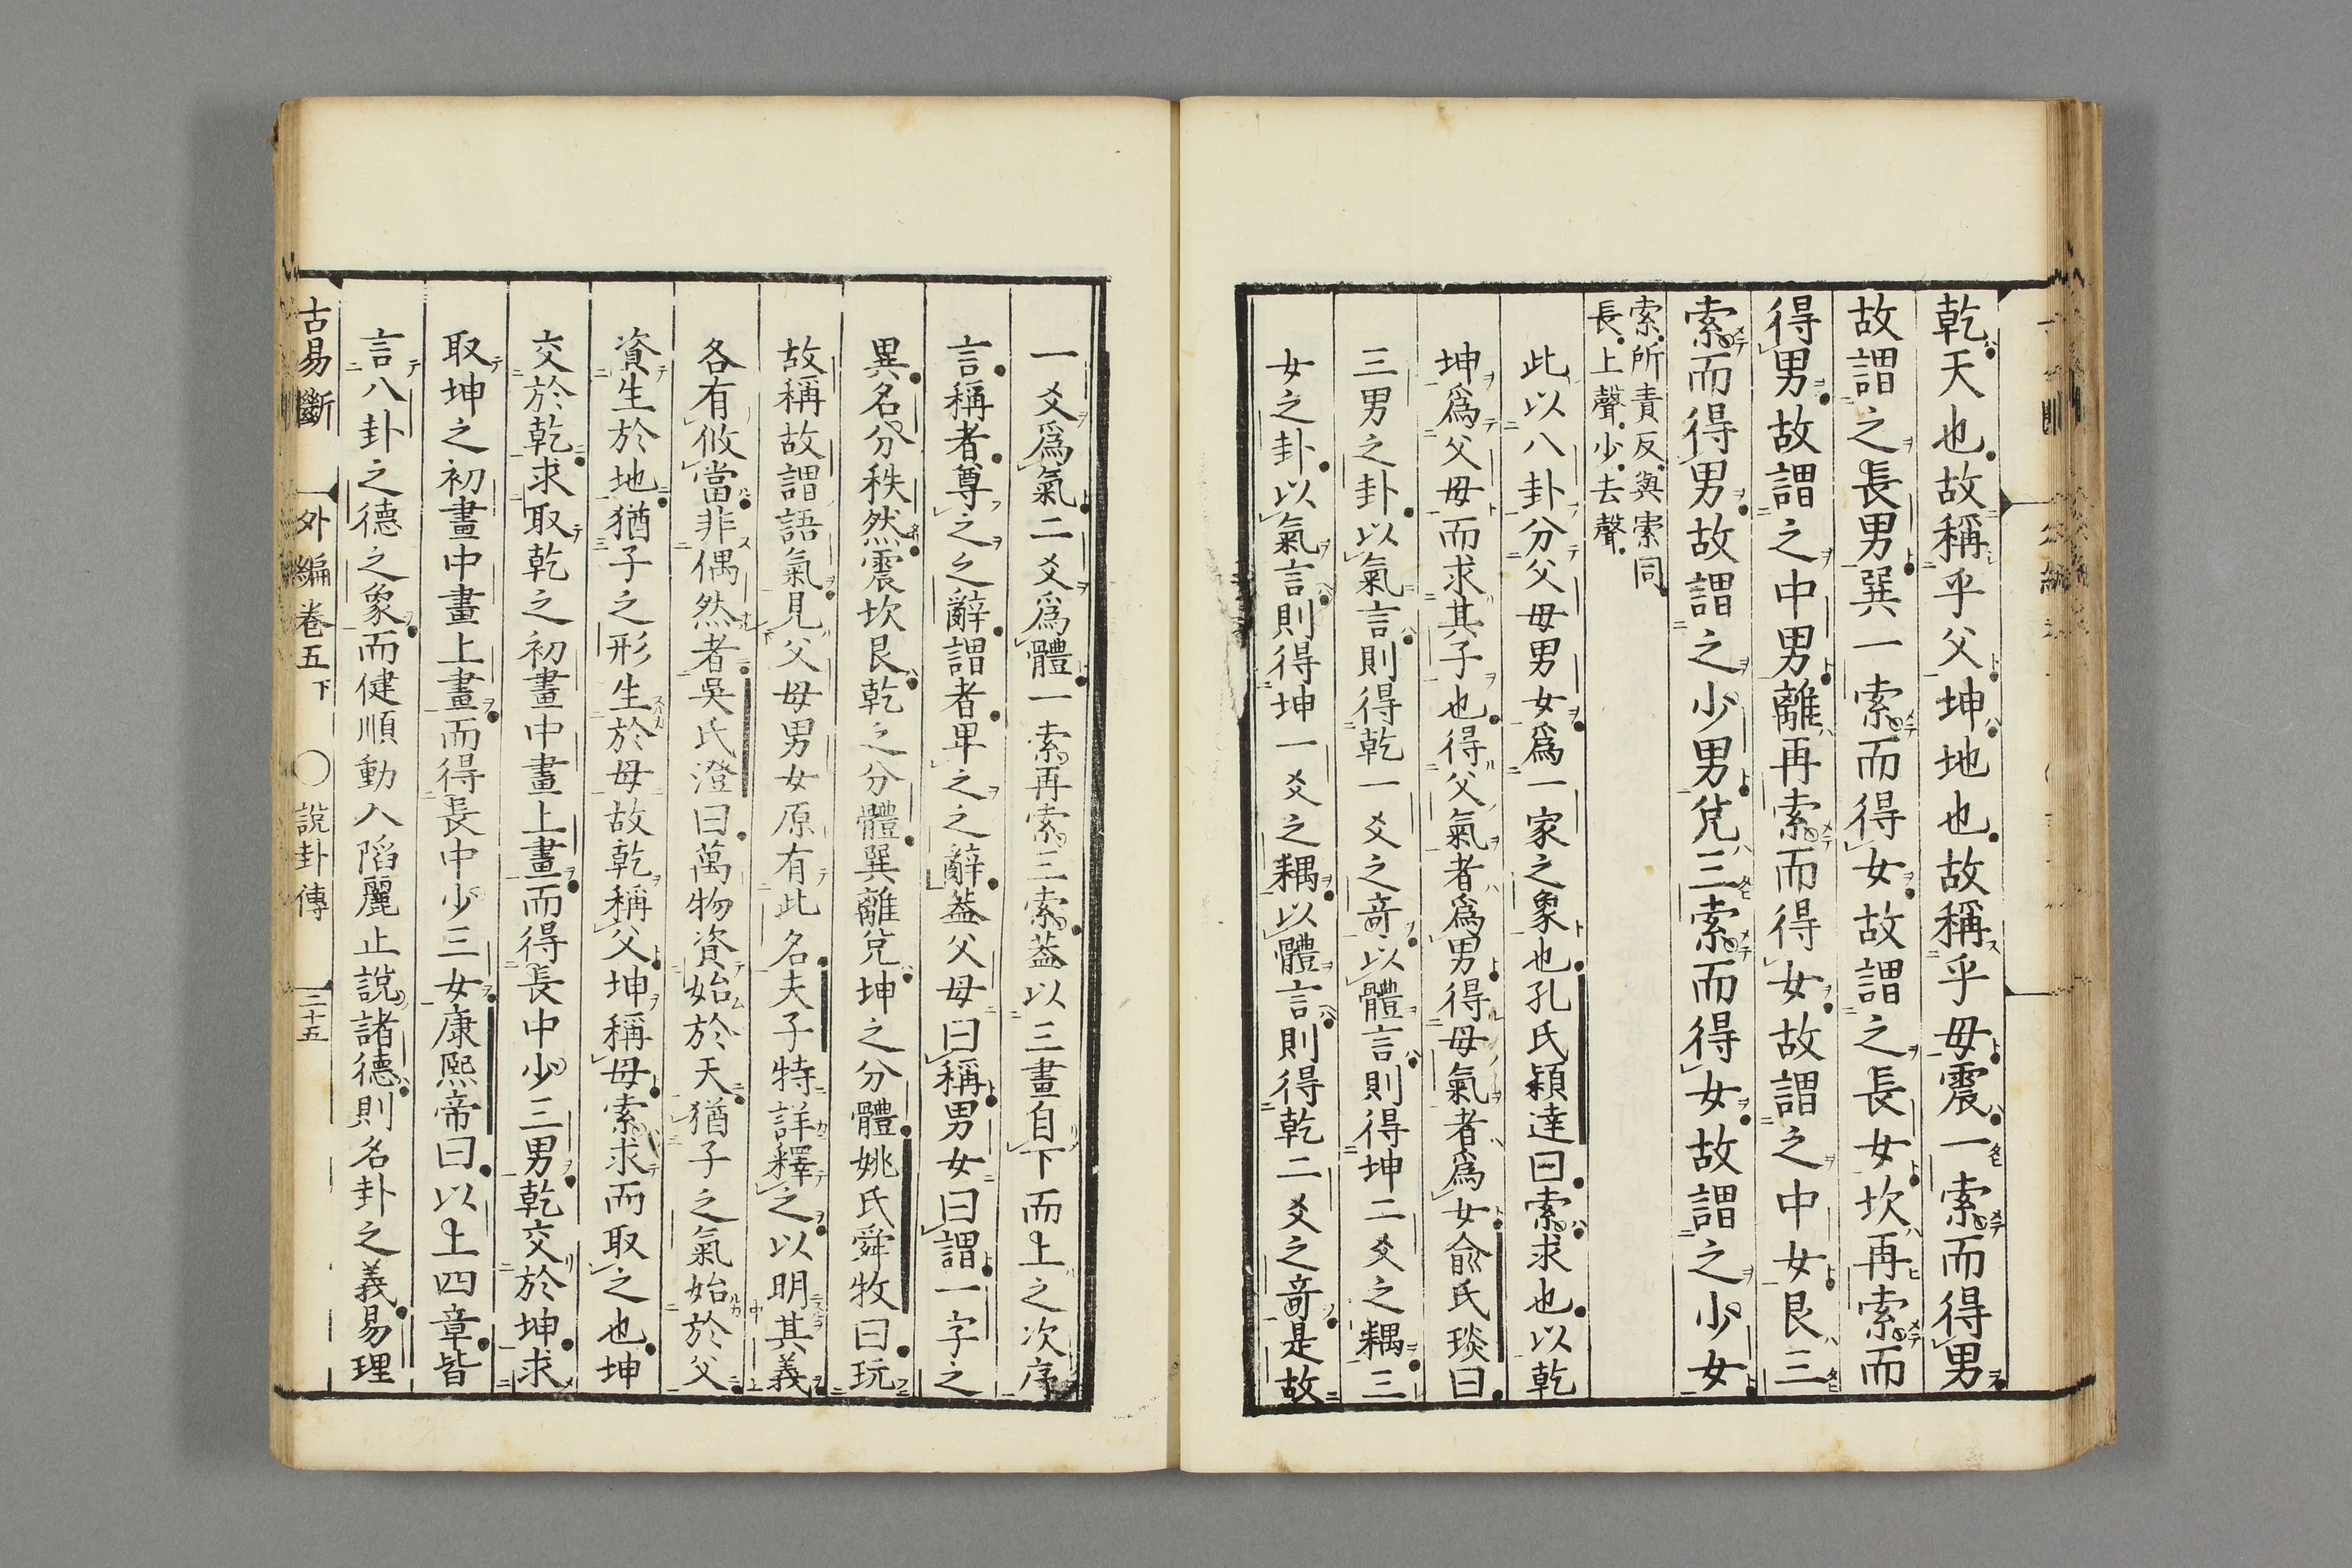 乾天也故稱乎父坤地也故稱乎母震一索而得男
故謂之長男巽一索而得女故謂之長女坎再索而
得男故謂之中男離再索而得女故謂之中女艮三
索而得男故謂之少男兌三索而得女故謂之少女
索所責反與索同
長上聲少去聲
此以八卦分父母男女爲一家之象也孔氏穎達曰索求也以乾
坤爲父母而求其子也得父氣者爲男得母氣者爲女兪氏琰曰
三男之卦以氣言則得乾一爻之奇以體言則得坤二爻之耦三
女之卦以氣言則得坤一爻之耦以體言則得乾二爻之奇是故
一爻爲氣二爻爲體一索再索三索葢以三畫自下而上之次序
言稱者尊之之辭謂者卑之之辭葢父母曰稱男女曰謂一字之
異名分秩然震坎艮乾之分體巽離兌坤之分體姚氏舜牧曰玩
故稱故謂語氣見父母男女原有此名夫子特詳釋之以明其義
各有攸當非偶然者吳氏澄曰萬物資始於天猶子之氣始於父
資生於地猶子之形生於母故乾稱父坤稱母索求而取之也坤
交於乾求取乾之初畫中畫上畫而得長中少三男乾交於坤求
取坤之初畫中畫上畫而得長中少三女康熙帝曰以上四章皆
言八卦之德之象而健順動入陷麗止說諸德則名卦之義易理
古易斷 外編卷五下 〇說卦傳 二十五